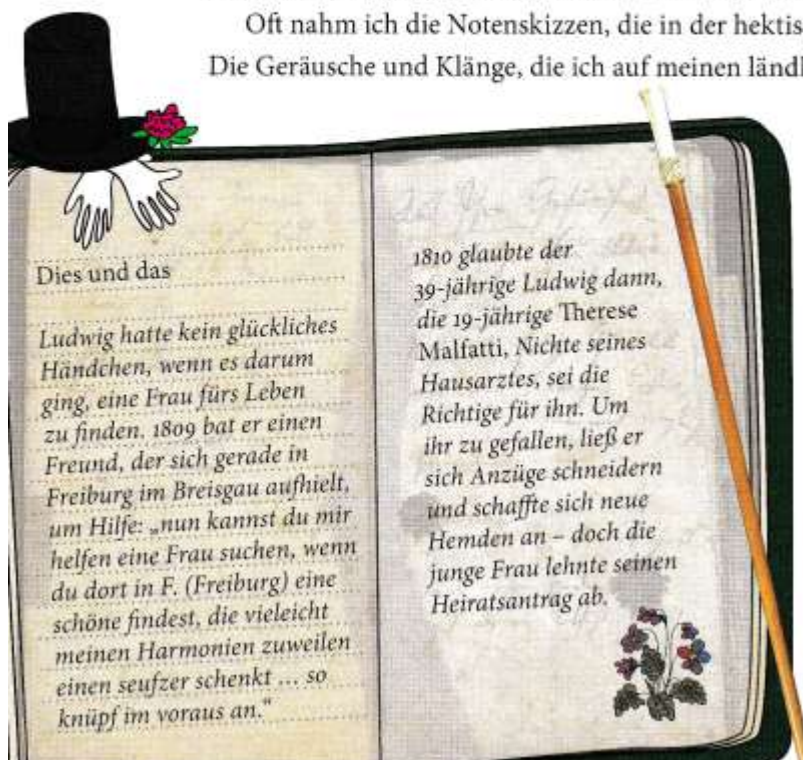 Oft nahm ich die Notenskizzen, die in der hektis
Die Geräusche und Klänge, die ich auf meinen ländl
Dies und das
Ludwig hatte kein glückliches
Händchen, wenn es darum
ging, eine Frau fürs Leben
zu finden. 1809 bat er einen
Freund, der sich gerade in
Freiburg im Breisgau aufhielt,
um Hilfe: „nun kannst du mir
helfen eine Frau suchen, wenn
du dort in F. (Freiburg) eine
schöne findest, die vieleicht
meinen Harmonien zuweilen
einen seufzer schenkt … so
knüpf im voraus an.“
1810 glaubte der
39-jährige Ludwig dann,
die 19-jährige Therese
Malfatti, Nichte seines
Hausarztes, sei die
Richtige für ihn. Um
ihr zu gefallen, ließ er
sich Anzüge schneidern
und schaffte sich neue
Hemden an – doch die
junge Frau lehnte seinen
Heiratsantrag ab.